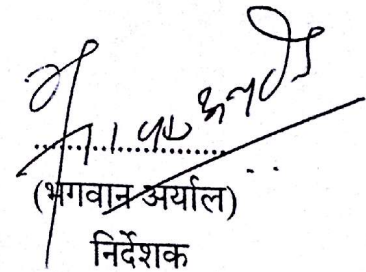 (भगवान अर्याल)
निर्देशक